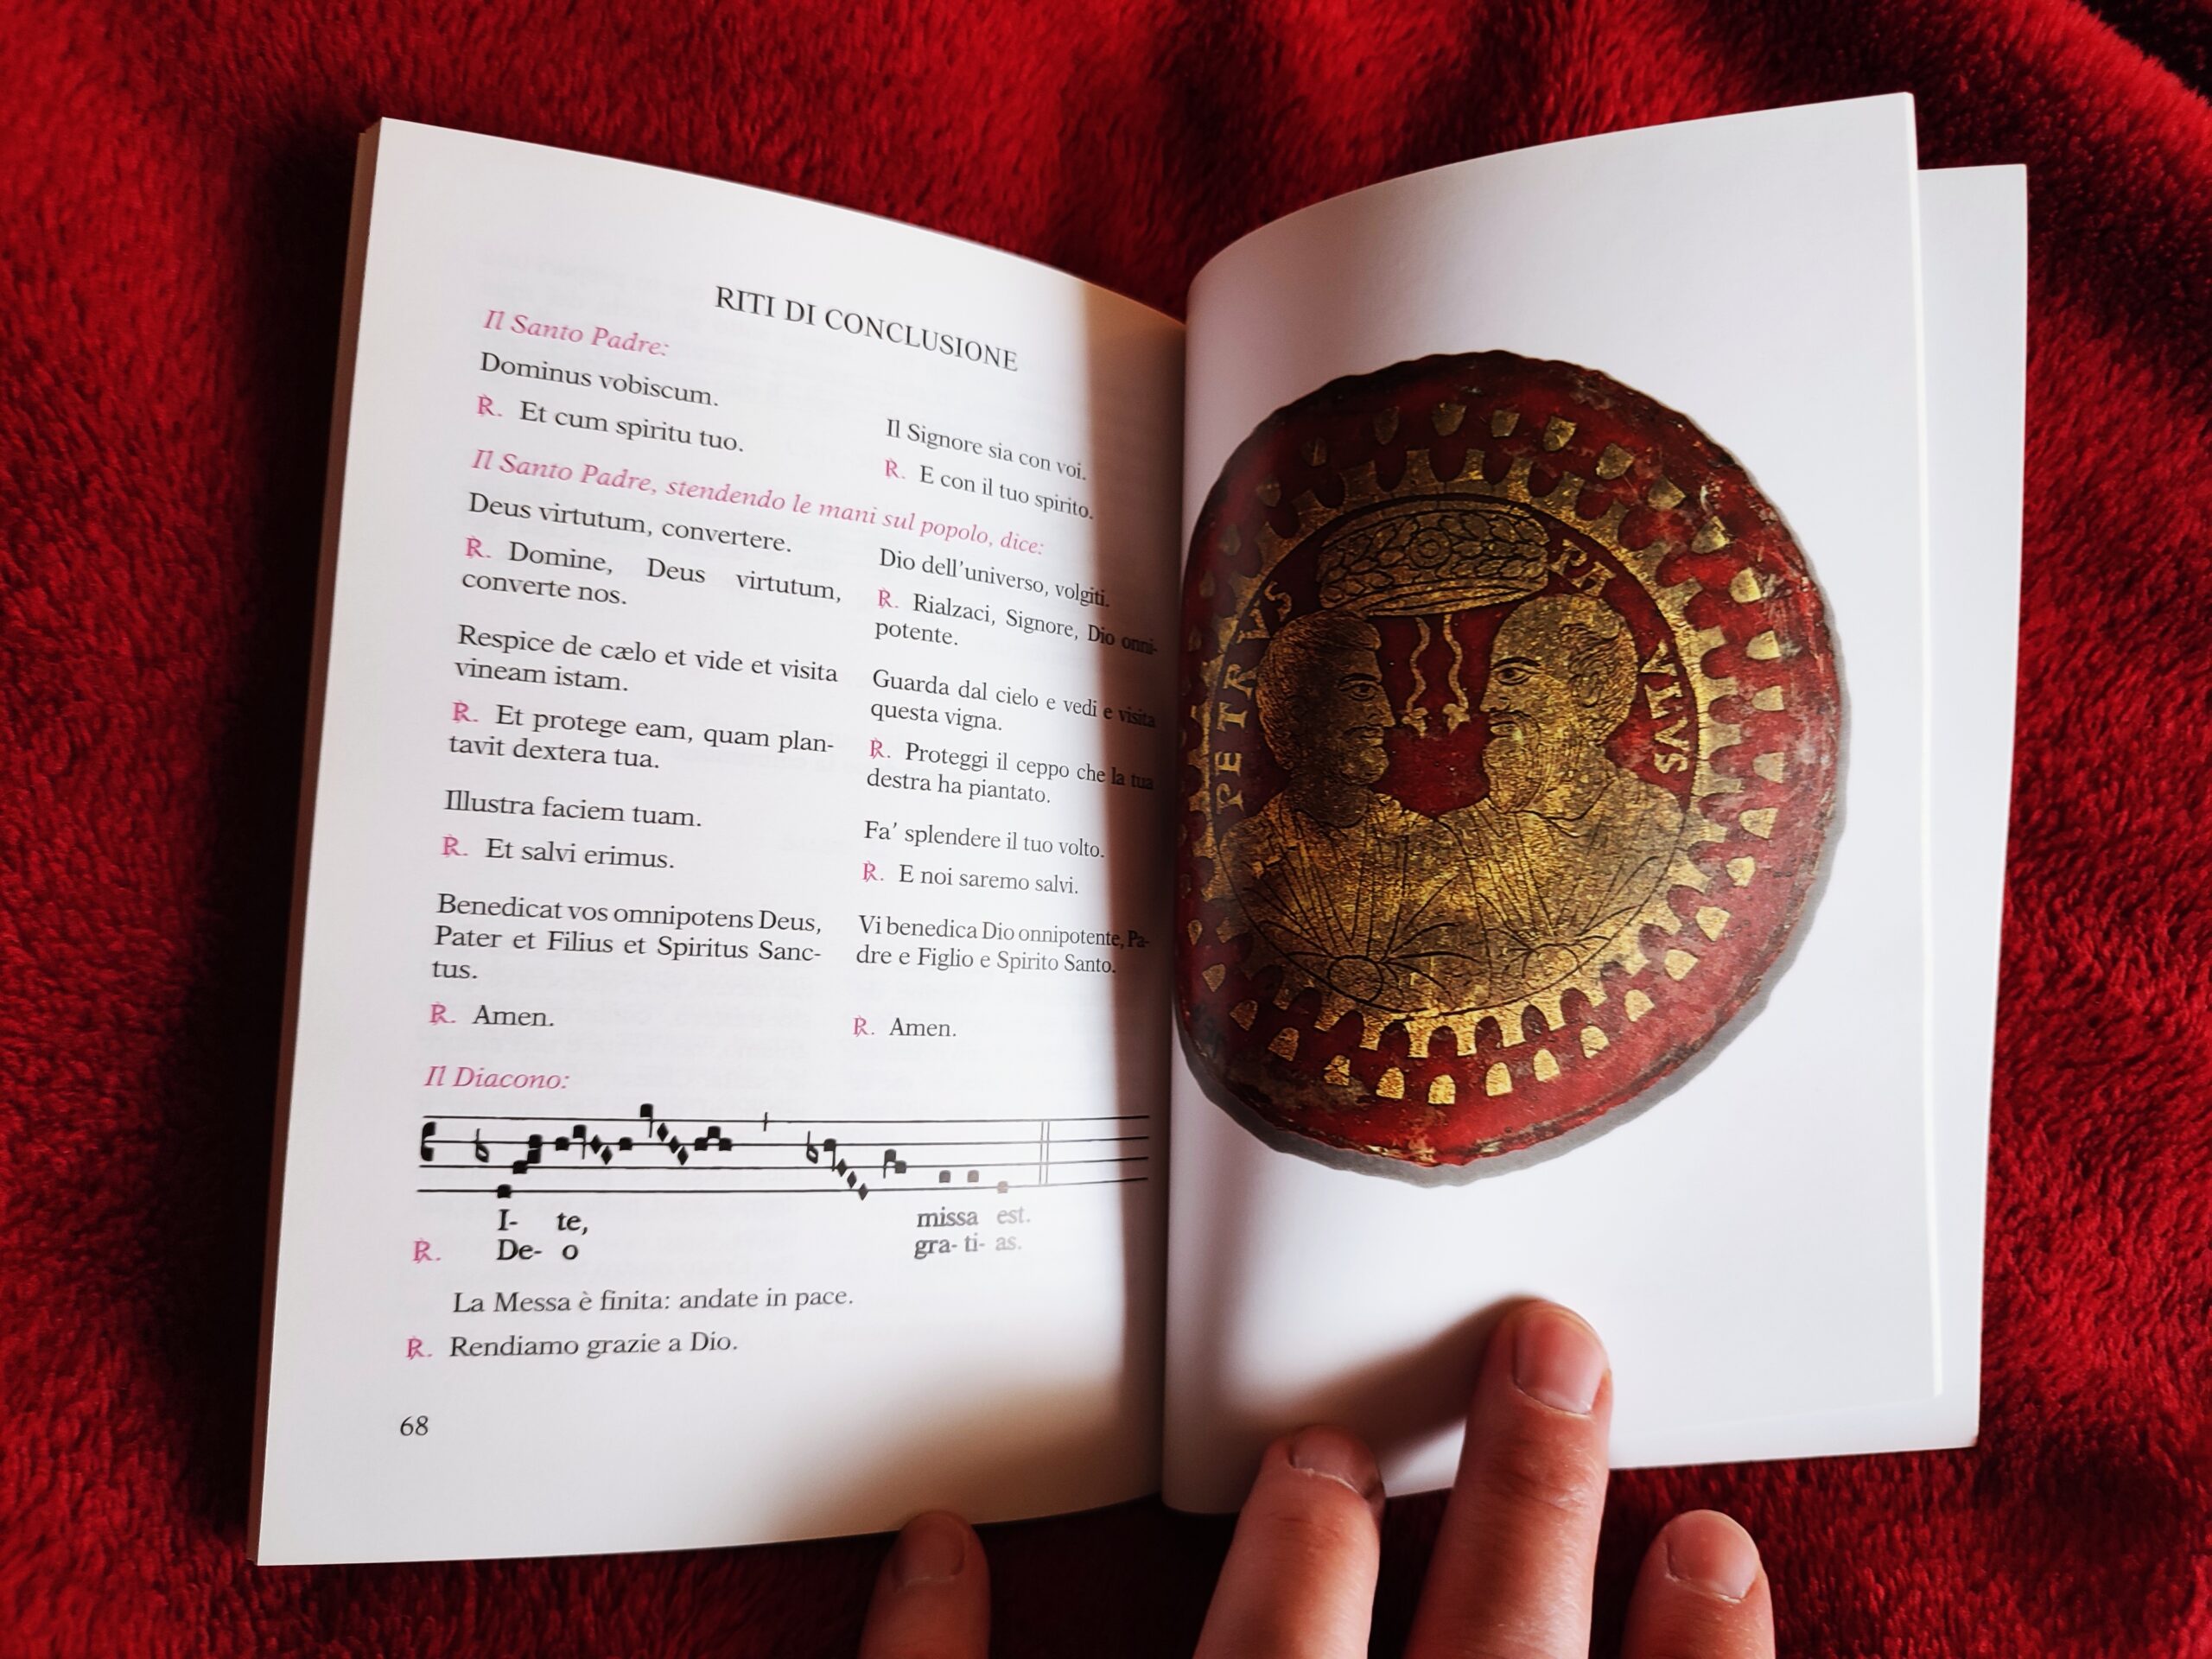 RITI DI CONCLUSIONE
Il Santo Padre:
Dominus vobiscum.
℟. Et cum spiritu tuo.
Il Signore sia con voi.
℟. E con il tuo spirito.
Il Santo Padre, stendendo le mani sul popolo, dice:
Deus virtutum, convertere.
℟. Domine, Deus virtutum,
converte nos.
Dio dell'universo, volgiti.
℟. Rialzaci, Signore, Dio onni-
potente.
Respice de cælo et vide et visita
vineam istam.
℟. Et protege eam, quam plan-
tavit dextera tua.
Guarda dal cielo e vedi e visita
questa vigna.
℟. Proteggi il ceppo che la tua
destra ha piantato.
Illustra faciem tuam.
℟. Et salvi erimus.
Fa' splendere il tuo volto.
℟. E noi saremo salvi.
Benedicat vos omnipotens Deus,
Pater et Filius et Spiritus Sanc-
tus.
℟. Amen.
Vi benedica Dio onnipotente, Pa-
dre e Figlio e Spirito Santo.
℟. Amen.
Il Diacono:
I- te, missa est.
℟. De- o gra- ti- as.
La Messa è finita: andate in pace.
℟. Rendiamo grazie a Dio.
68
PETRVS
PAVLVS